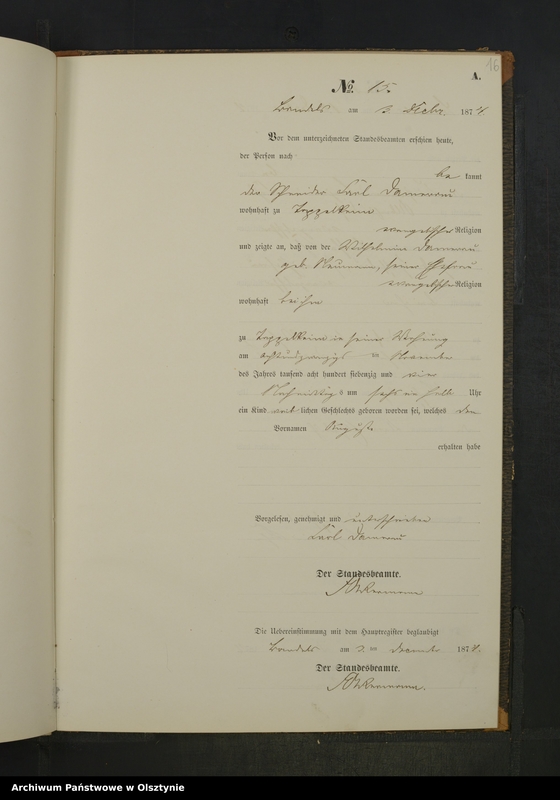 16
A.
No. 15.
am 3. Dcbr. 1874
Vor dem unterzeichneten Standesbeamten erschien heute,
der Person nach
be kannt
der Carl Damerau
wohnhaft zu
evangelischer Religion
und zeigte an, daß von der Wilhelmine Damerau
geb. Neumann, seiner Ehefrau
evangelischer Religion
wohnhaft bei ihm
zu in seiner Wohnung
am achtundzwanzigsten November
des Jahres tausend acht hundert siebenzig und vier
Nachmittags um sechs ein halb Uhr
ein Kind lichen Geschlechts geboren worden sei, welches den
Vornamen August
erhalten habe
Vorgelesen, genehmigt und unterschrieben
Carl Damerau
Der Standesbeamte.
Die Uebereinstimmung mit dem Hauptregister beglaubigt
am 3. ten December 1874.
Der Standesbeamte.
Archiwum Państwowe w Olsztynie